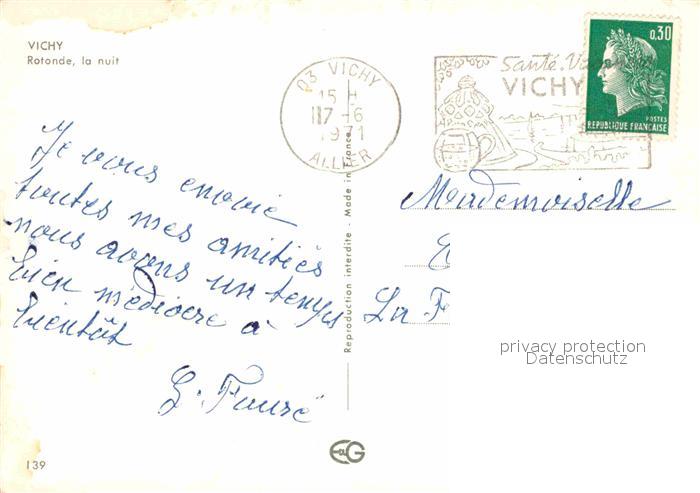 VICHY
Rotonde, la nuit
03 VICHY
15 H
17-6
1971
ALLIER
Santé. Vacances
VICHY
0,30
POSTES
REPUBLIQUE FRANÇAISE
Je vous envoie
toutes mes amitiés
nous avons un temps
bien médiocre à
bientôt
Mademoiselle
La F
Reproduction interdite - Made in France
privacy protection
Datenschutz
139
EG